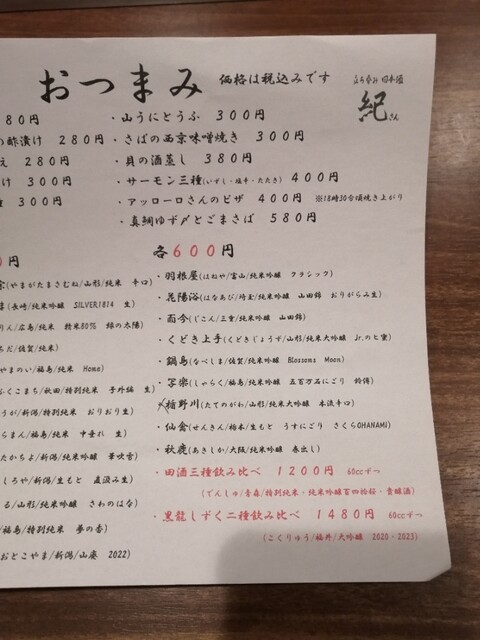 おつまみ 価格は税込みです
立ち呑み 日本酒
紀さん
80円
の酢漬け 280円
え 280円
け 300円
300円
・山うにとうふ 300円
・さばの西京味噌焼き 300円
・貝の酒蒸し 380円
・サーモン三種(いずし・塩辛・たたき) 400円
・アッローロさんのピザ 400円 ※18時30分頃焼き上がり
・真鯛ゆず〆とごまさば 580円
円
宗(やまがたまさむね/山形/純米 辛口)
(長崎/純米吟醸 SILVER1814 生)
りん/広島/純米 精米80% 緑の太陽)
ちだ/佐賀/純米)
やまのい/福島/純米 Home)
ふくこまち/秋田/特別純米 手外編 生)
うが/新潟/特別純米 おりおり生)
らまん/福島/純米 中垂れ 生)
たかちよ/新潟/純米吟醸 華吹雪)
しろや/新潟/生もと 直汲み生)
る/山形/純米吟醸 さわのはな)
/福島/特別純米 夢の香)
おとこやま/新潟/山廃 2022)
各600円
・羽根屋(はねや/富山/純米吟醸 クラシック)
・花陽浴(はなあび/埼玉/純米吟醸 山田錦 おりがらみ生)
・而今(じこん/三重/純米吟醸 山田錦)
・くどき上手(くどきじょうず/山形/純米大吟醸 Jr.のヒ蜜)
・鍋島(なべしま/佐賀/純米吟醸 Blossoms Moon)
・写楽(しゃらく/福島/純米吟醸 五百万石にごり 鈴傳)
・楯野川(たてのがわ/山形/純米大吟醸 本流辛口)
・仙禽(せんきん/栃木/生もと うすにごり さくらOHANAMI)
・秋鹿(あきしか/大阪/純米吟醸 春出し)
・田酒三種飲み比べ 1200円 60ccずつ
(でんしゅ/青森/特別純米・純米吟醸百四拾桜・貴醸酒)
・黒龍しずく二種飲み比べ 1480円 60ccずつ
(こくりゅう/福井/大吟醸 2020・2023)